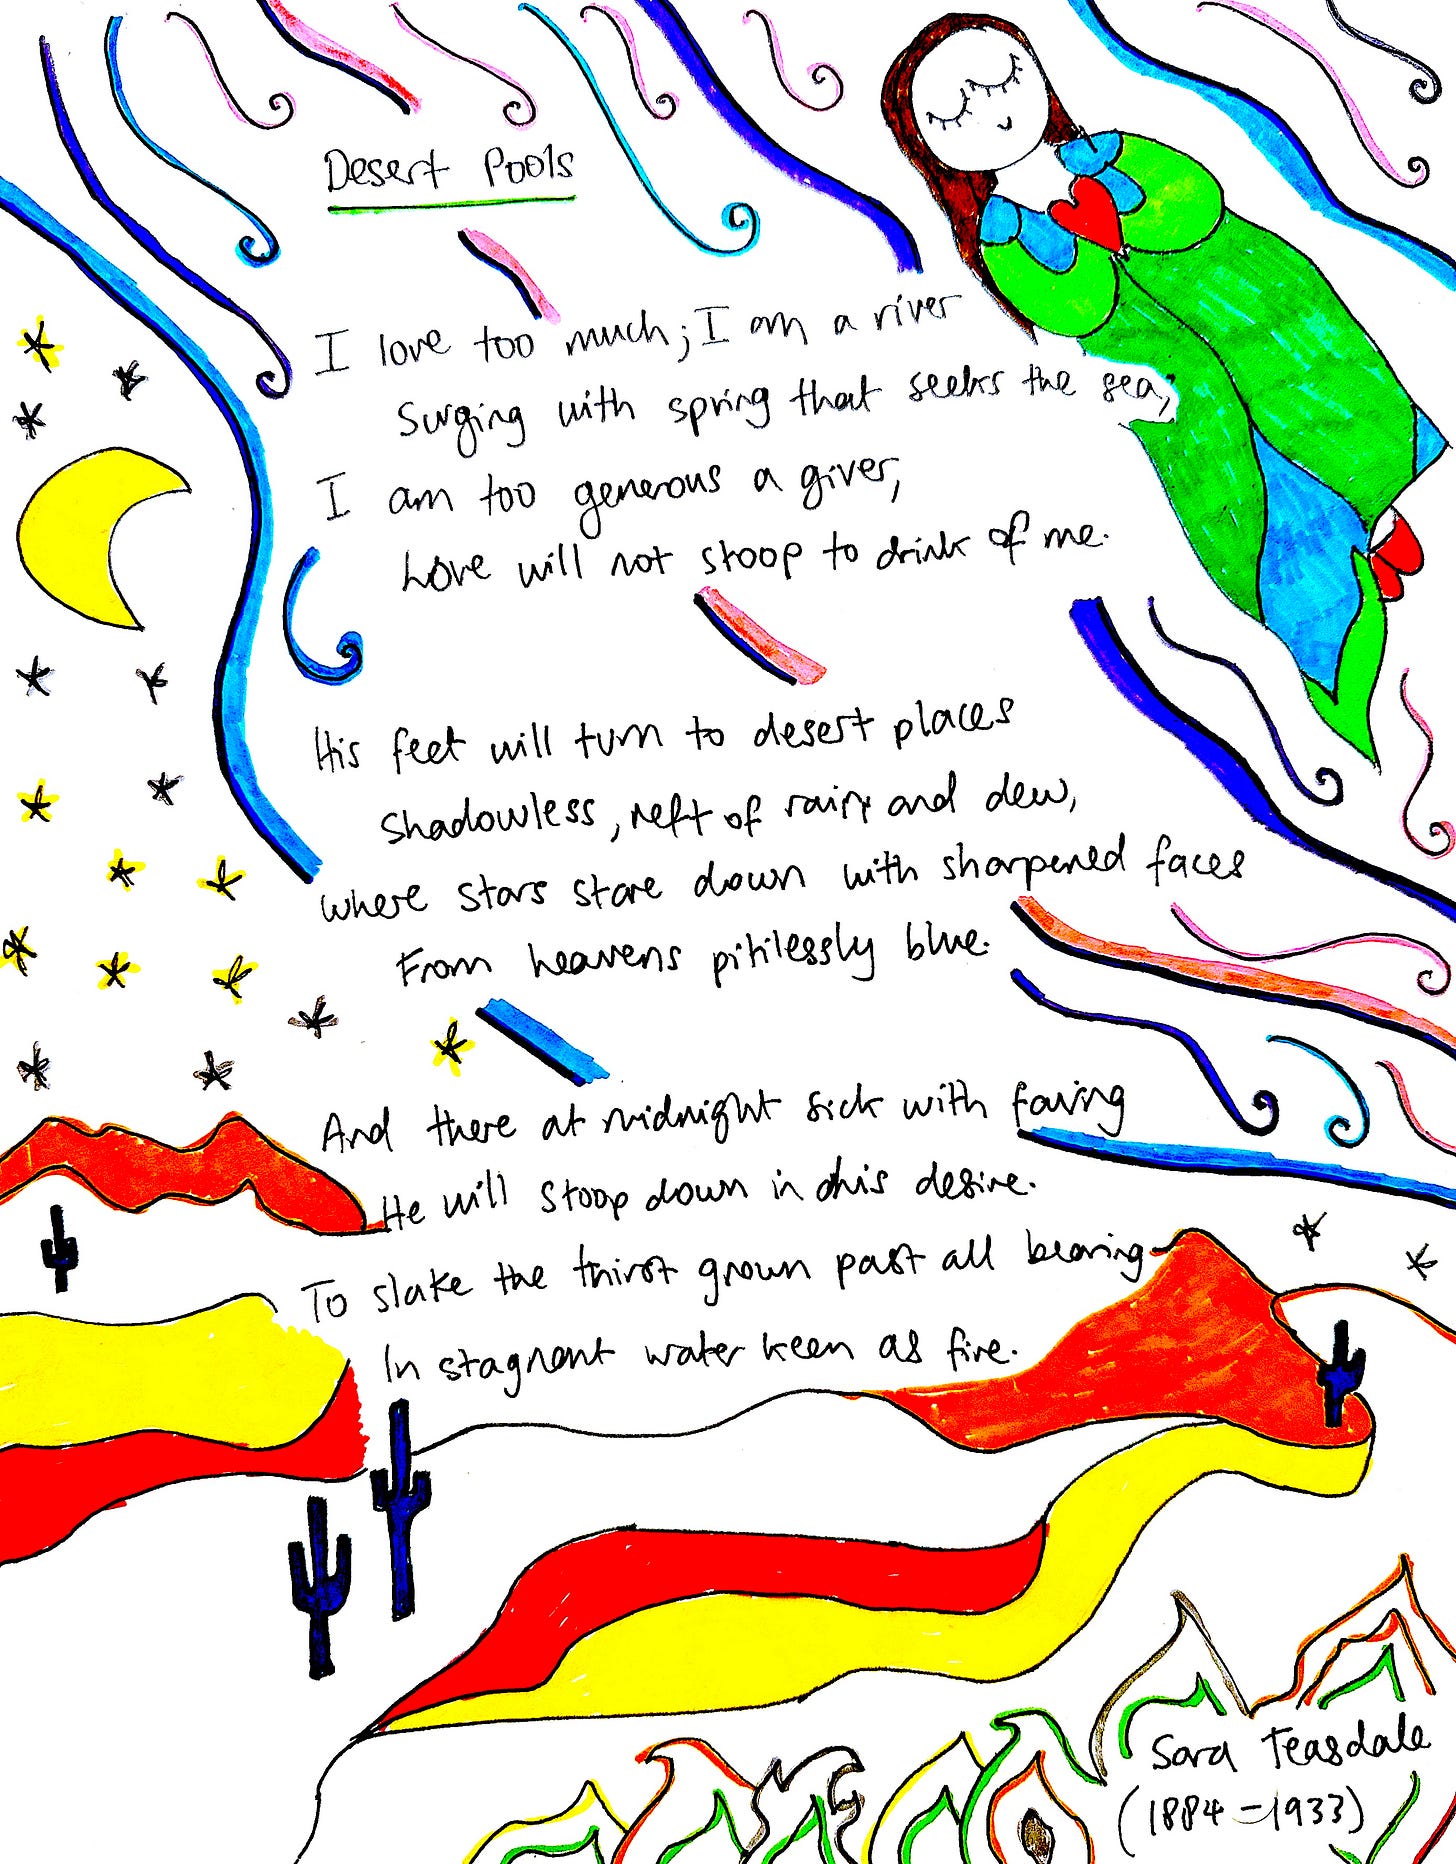 Desert Pools
I love too much; I am a river
Surging with spring that seeks the sea,
I am too generous a giver,
Love will not stoop to drink of me.
His feet will turn to desert places
Shadowless, reft of rain and dew,
Where stars stare down with sharpened faces
From heavens pitilessly blue.
And there at midnight sick with faring
He will stoop down in his desire.
To slake the thirst grown past all bearing
In stagnant water keen as fire.
Sara Teasdale
(1884-1933)